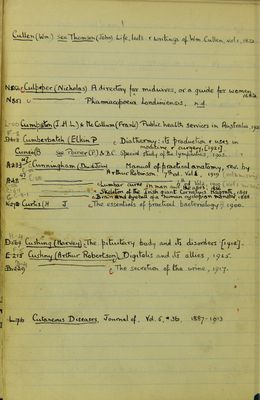 Cullen (Wm.) See Thomson (John) Life, lects & writings of Wm Cullen, vol 1, 1832.
Culpeper (Nicholas) A directory for midwives, or a guide for women
N851 Pharmacopoeia Londinensis, n.d.
Cumpston (J.H.L.) & McCallum (Frank) Public health services in Australia
Cumberbatch (Elkin P. Diathermy: its production & uses in
medicine & surgery, [1921]
Cuneo (B See Poirier (P.) & B.C. Special study of the lymphatics, 1903.
Cunningham (Manual of practical anatomy, rev. by
Arthur Robinson 7th ed. Vol 1, 1919
Lumbar curve in man and the apes, 1886
Skeleton of the Irish giant Cornelius Magrath, 1891
Brain and eyeball of a human cyclopian monster,
Curtis (H J The essentials of practical bacteriology, 1900.
Cushing (Harvey) The pituitary body and its disorders [1912].
E.215 Cushny (Arthur Robertson) Digitalis and its allies, 1925.
The secretion of the urine, 1917.
Cutaneous Diseases, Journal of, Vol. 5, 1887-1913